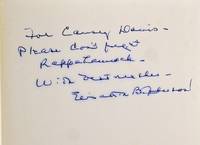 For Causey Davis -
Please don't forget
Rappahannock -
With best wishes -
Elisabeth B. Johnson